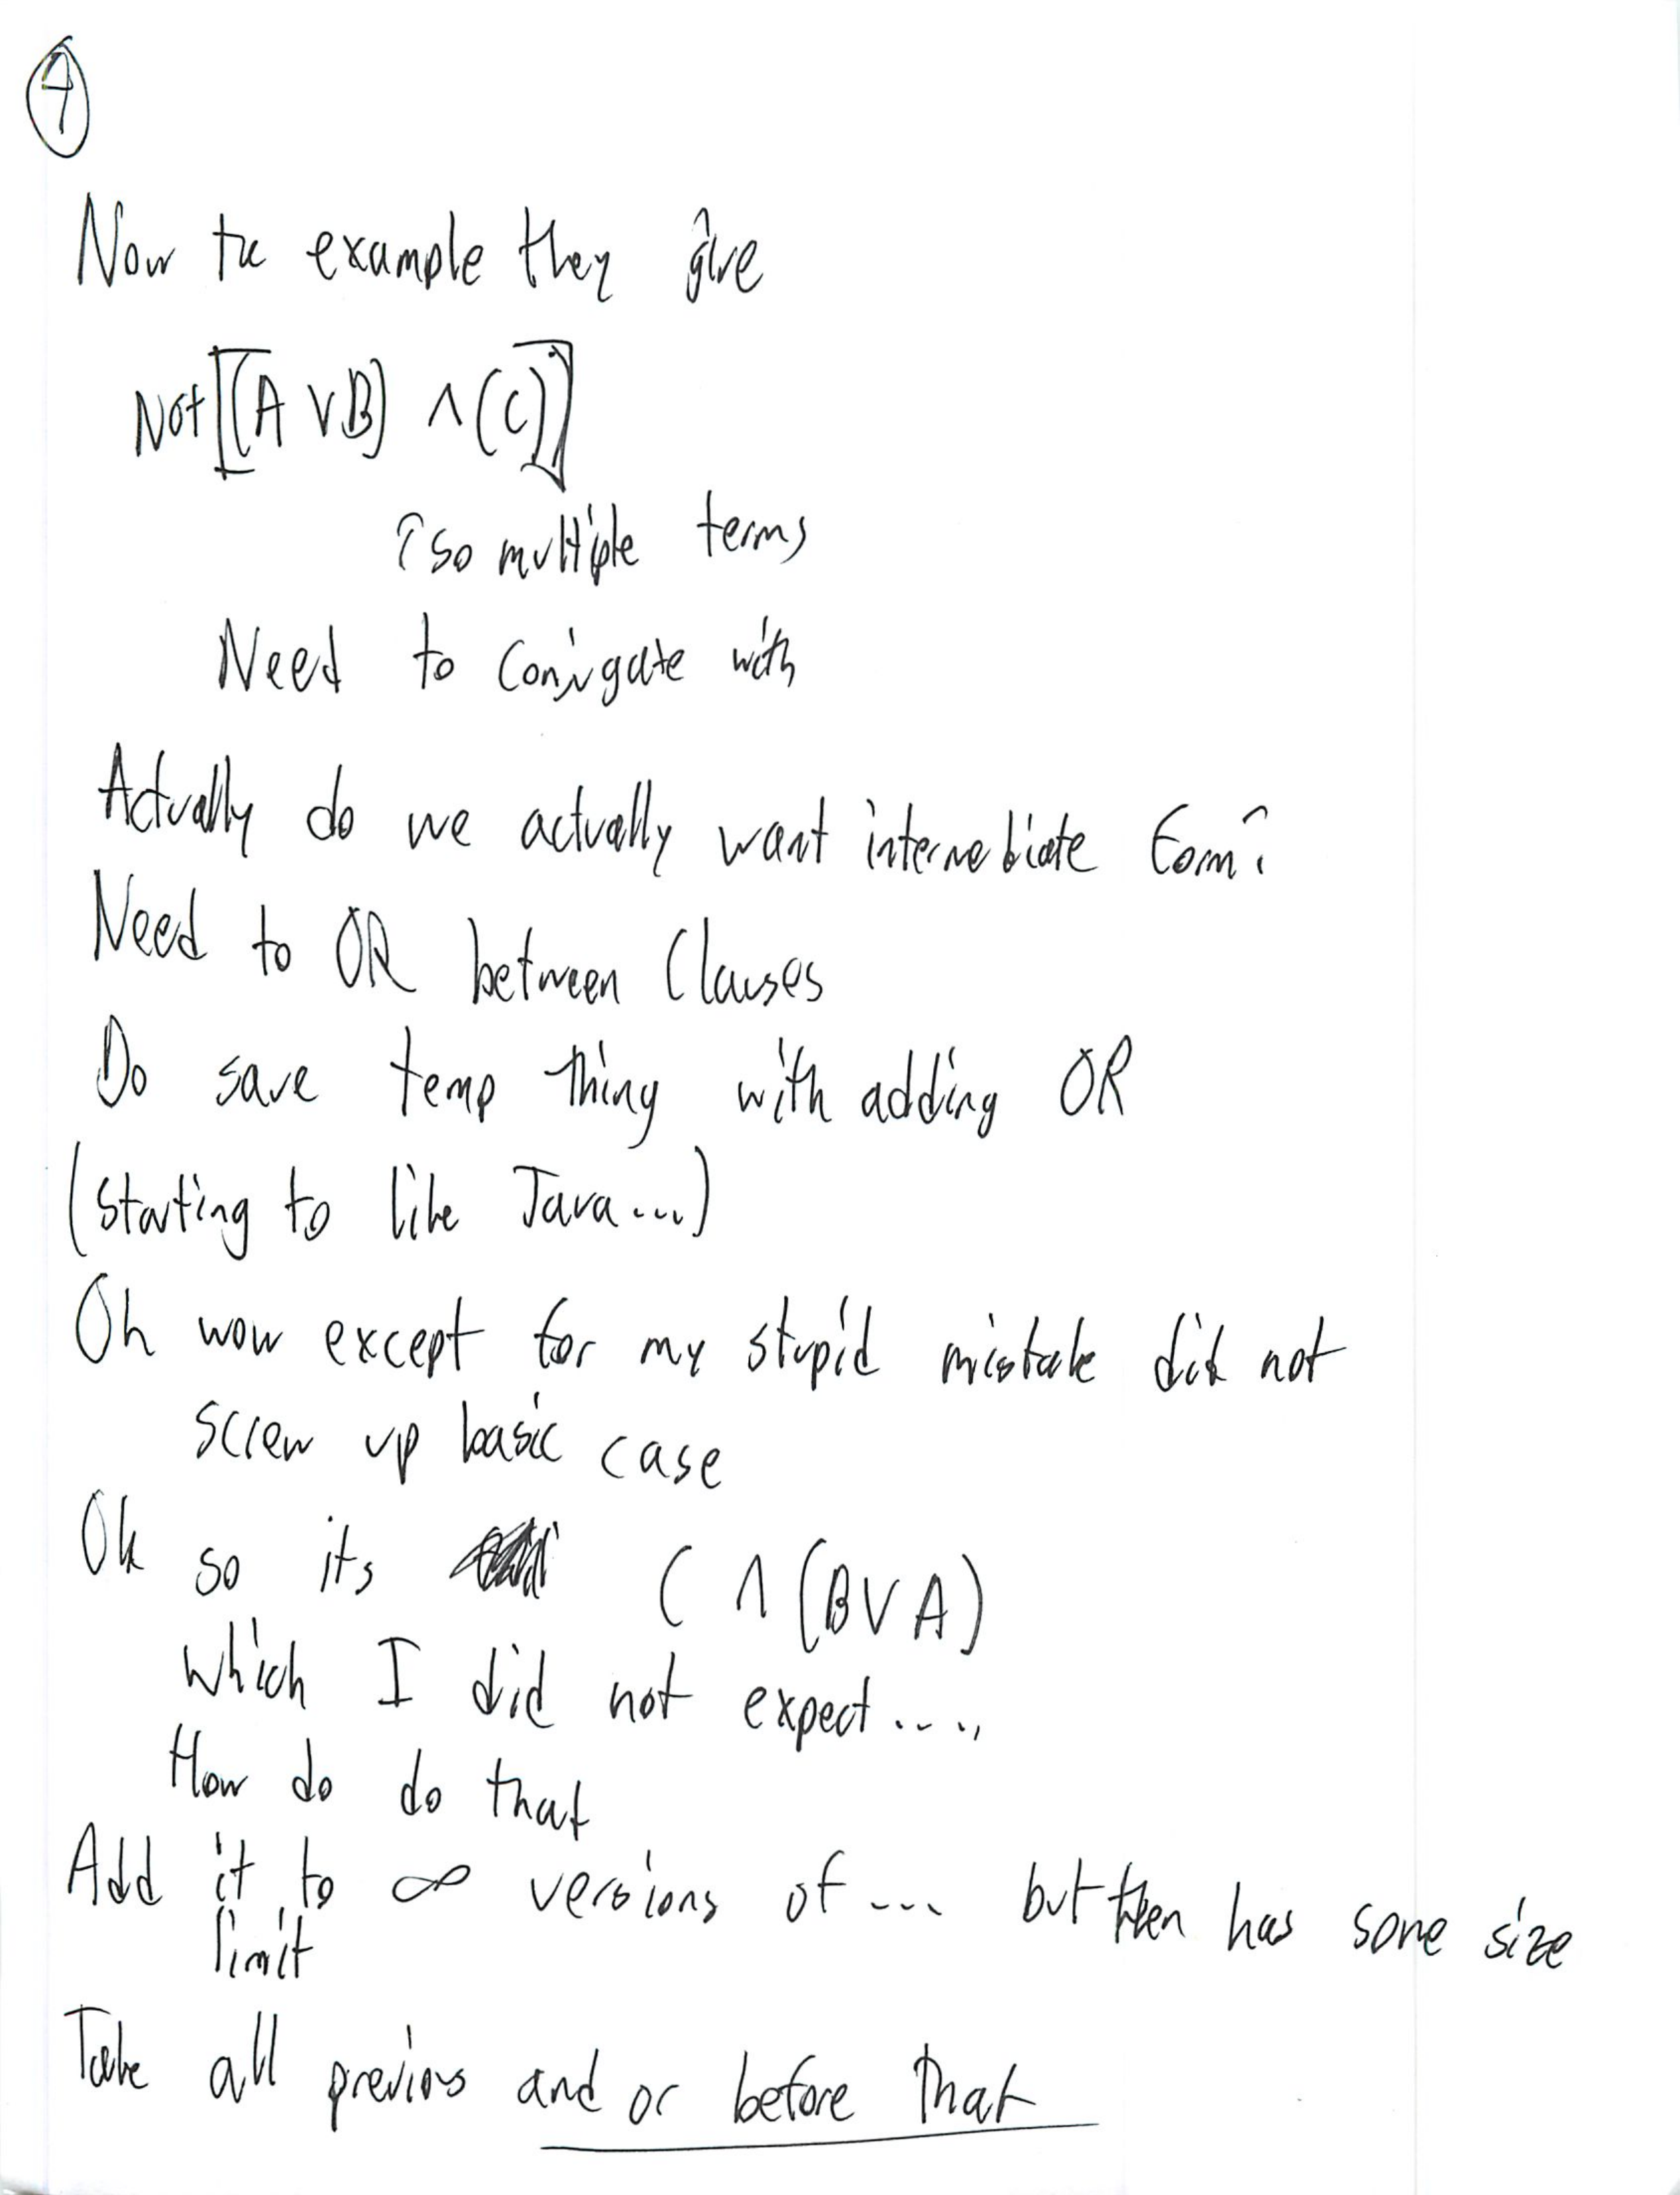 4
Now the example they give
Not [(A ∨ B) ∧ (C)]
? so multiple terms
Need to conjugate with
Actually do we actually want intermediate form?
Need to OR between Clauses
Do save temp thing with adding OR
(starting to like Java...)
Oh wow except for my stupid mistake did not
screw up basic case
Ok so its C ∧ (B ∨ A)
which I did not expect....
How do do that
Add it to ∞ versions of ... but then has some size
limit
Take all previous and or before that